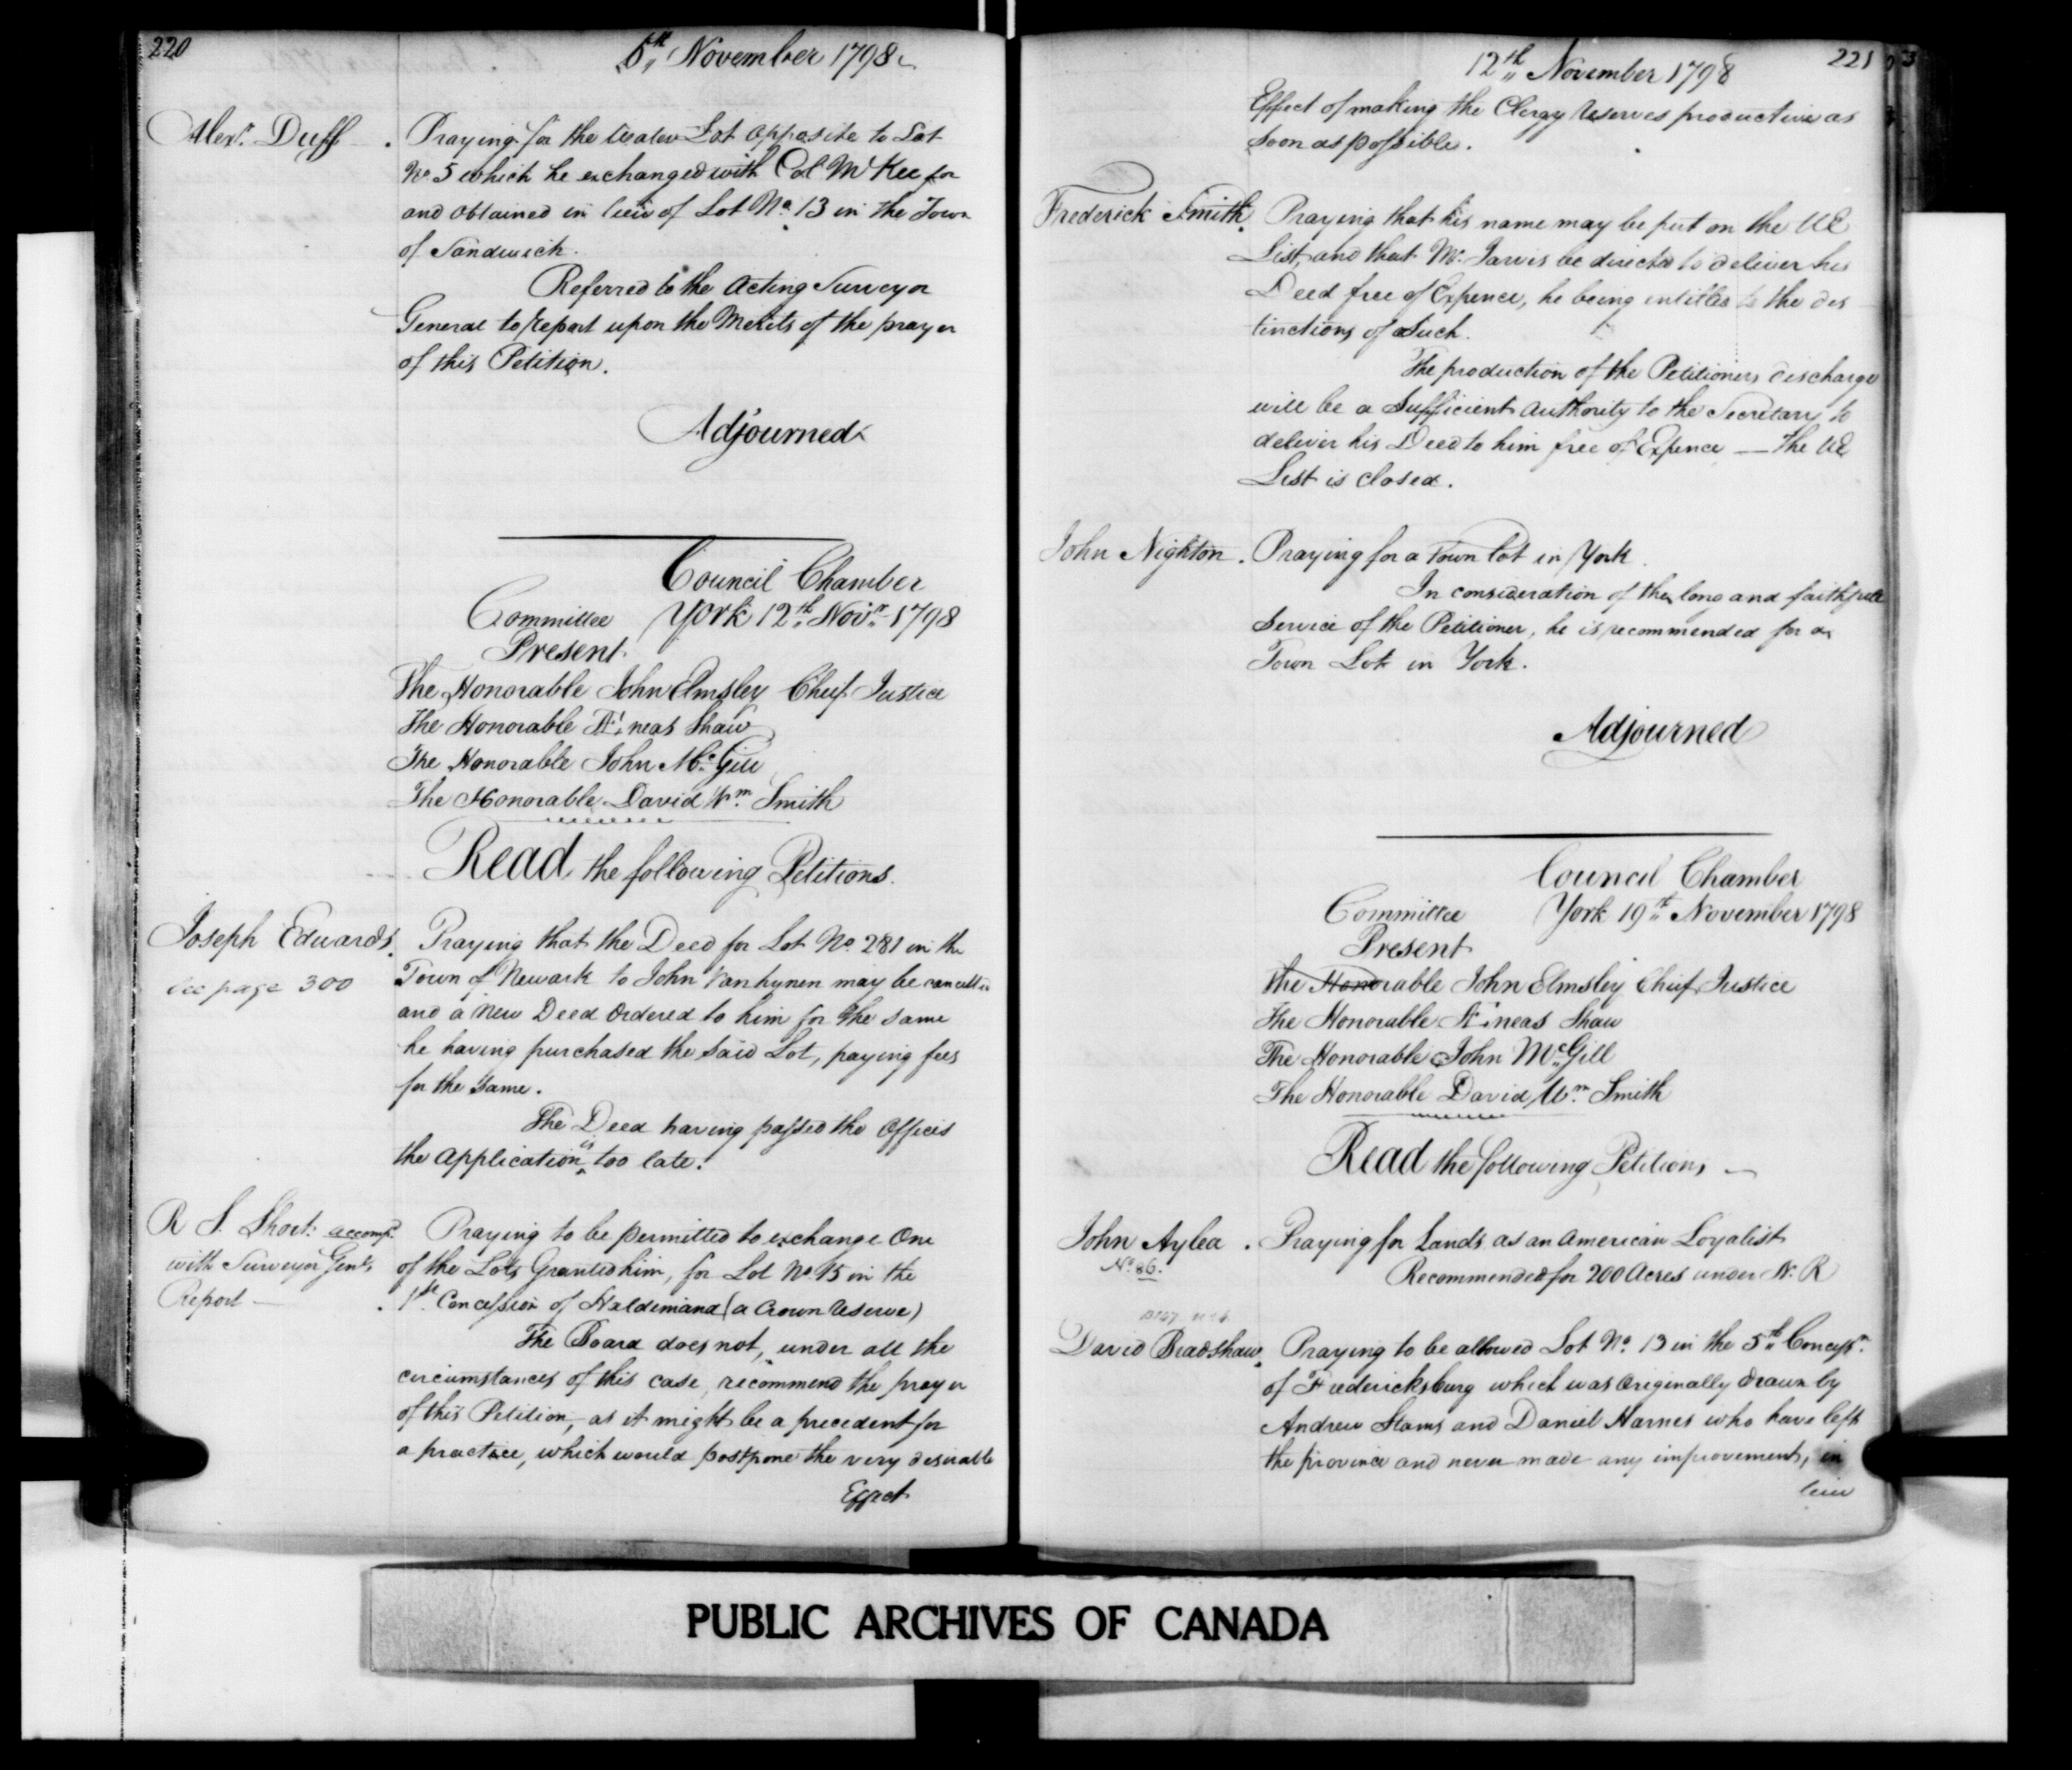 220
5th November 1798
Alexr. Duff. Praying for the Water Lot opposite to Lot
No. 5 which he exchanged with Col. McKee for
and obtained in lieu of Lot No. 13 in the Town
of Sandwich.
Referred to the Acting Surveyor
General to report upon the Merits of the prayer
of this Petition.
Adjourned
Council Chamber
Committee York 12th Novr. 1798
Present
The Honorable John Elmsley Chief Justice
The Honorable Æneas Shaw
The Honorable John McGill
The Honorable David Wm. Smith
Read the following Petitions.
Joseph Edwards. Praying that the Deed for Lot No. 281 in the
See page 300 Town of Newark to John Vanhynen may be cancelled
and a New Deed Ordered to him for the same
he having purchased the said Lot, paying fees
for the same.
The Deed having passed the Offices
the Application is too late.
R S. Short: accompd. Praying to be permitted to exchange One
with Surveyor Genls of the Lots Granted him, for Lot No. 15 in the
Report. 1st Concession of Haldimand (a Crown Reserve)
The Board does not, under all the
circumstances of this case, recommend the prayer
of this Petition, as it might be a precedent for
a practice, which would postpone the very desirable
Effect
12th November 1798
221
Effect of making the Clergy Reserves productive as
soon as possible.
Frederick Smith. Praying that his name may be put on the UE
List, and that Mr. Jarvis be directed to deliver his
Deed free of Expence, he being entitled to the dis
tinctions of Such.
The production of the Petitioners discharge
will be a Sufficient authority to the Secretary to
deliver his Deed to him free of Expence — The UE
List is closed.
John Nighton. Praying for a Town lot in York.
In consideration of the long and faithfull
Service of the Petitioner, he is recommended for a
Town Lot in York.
Adjourned
Council Chamber
Committee York 19th November 1798
Present
The Honorable John Elmsley Chief Justice
The Honorable Æneas Shaw
The Honorable John McGill
The Honorable David Wm. Smith
Read the following Petitions —
John Aylea. Praying for Lands as an American Loyalist
No. 86. Recommended for 200 Acres under N. R
David Bradshaw. Praying to be allowed Lot No. 13 in the 5th Concessn.
of Fredericksburg which was Originally drawn by
Andrew Stams and Daniel Harnes who have left
the province and never made any improvement, in
lieu
PUBLIC ARCHIVES OF CANADA